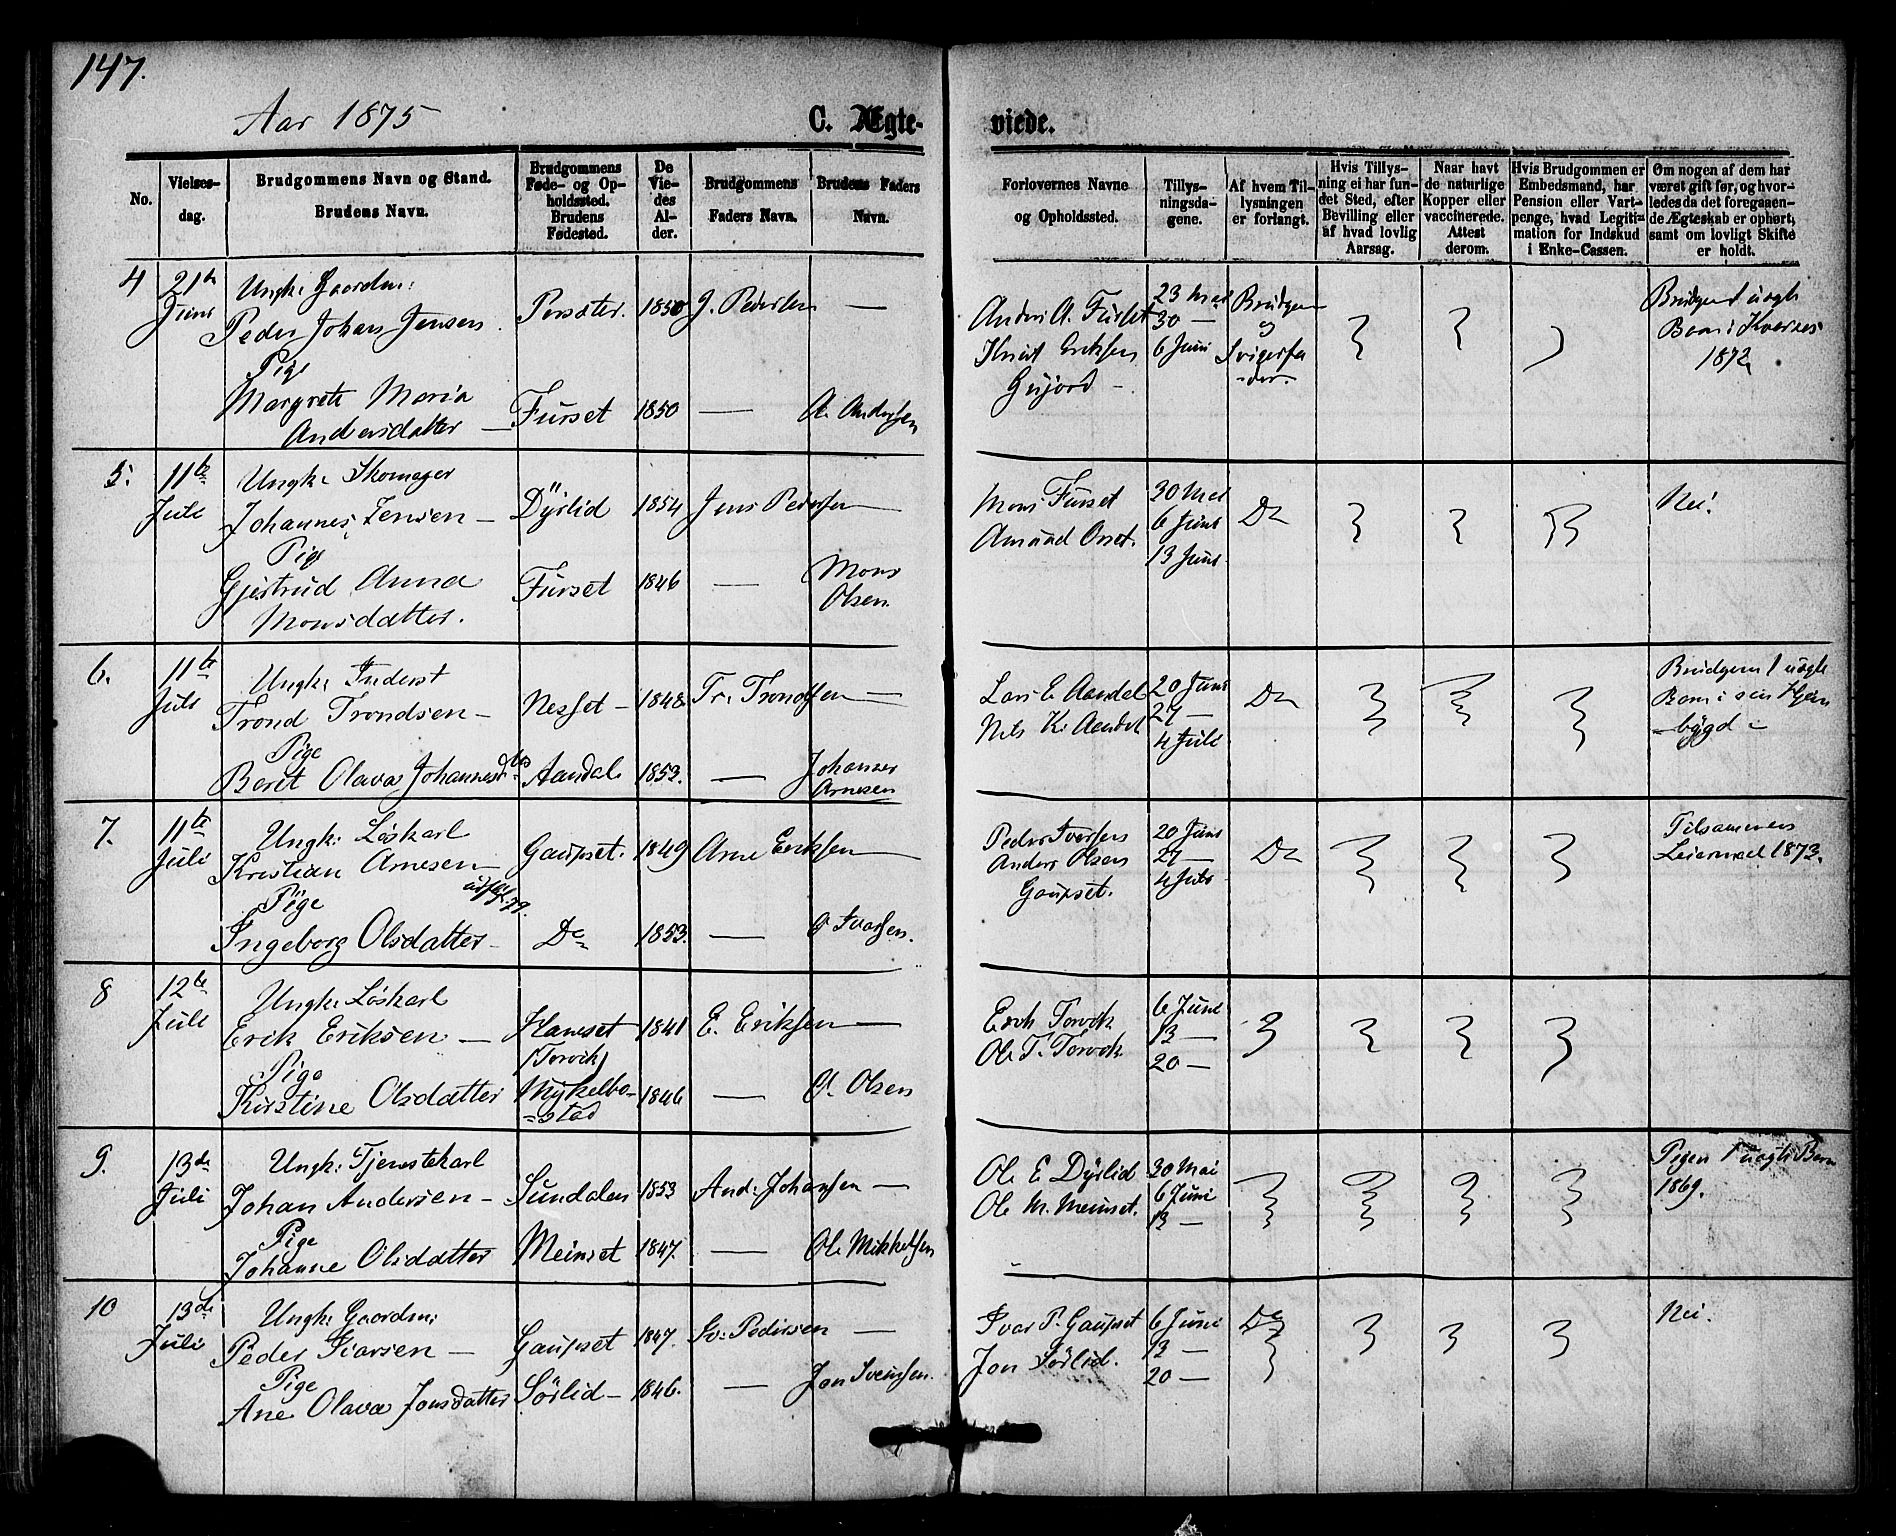 147.
Aar 1875
C. Ægte- viede.
No.
Vielses-
dag.
Brudgommens Navn og Stand.
Brudens Navn.
Brudgommens
Føde- og Op-
holdssted.
Brudens
Fødested.
De
Vie-
des
Al-
der.
Brudgommens
Faders Navn.
Brudens Faders
Navn.
Forlovernes Navne
og Opholdssted.
Tillys-
ningsda-
gene.
Af hvem Til-
lysningen
er forlangt.
Hvis Tillys-
ning ei har fun-
det Sted, efter
Bevilling eller
af hvad lovlig
Aarsag.
Naar havt
de naturlige
Kopper eller
vaccinerede.
Attest
derom.
Hvis Brudgommen er
Embedsmand, har
Pension eller Vart-
penge, hvad Legiti-
mation for Indskud
i Enke-Cassen.
Om nogen af dem har
været gift før, og hvor-
ledes da det foregaaen-
de Ægteskab er ophørt,
samt om lovligt Skifte
er holdt.
4
21de
Juni
Ungk: Gaardm:
Peder Johan Jensen
Pige
Margrete Maria
Andersdatter —
1850
J. Pedersen —
Furset
1850
—
A. Andersen
Anders A. Furset
Knut Eriksen
Gujord —
23 Mai
30 —
6 Juni
Brudgom
og
Svigerfa
-der.
Brudgom 1 uægte
Barn i Kvernes
1872
5.
11te
Juli
Ungk. Skomager
Johannes Jensen —
Pige
Gjertrud Anna
Monsdatter.
Dÿrlid
1854
Jens Pedersen
Furset
1846
—
Mons
Olsen.
Mons Furset
Amund Orset.
30 Mai
6 Juni
13 Juni
Do
Nei.
6.
11te
Juli
Ungk. Inderst
Trond Trondsen —
Pige
Beret Olava Johannesdtr
Nesset —
1848
Tr. Trondsen —
Aandal
1853.
—
Johannes
Arnesen
Lars E. Aandal
Nils K. Aandal
20 Juni
27 —
4 Juli
Do
Brudgom 1 uægte
Barn i sin Hjem
-bygd —
7.
11te
Juli
Ungk: Løskarl
Kristian Arnesen —
Pige
Ingeborg Olsdatter —
Gaupset.
1849
Arne Eriksen —
Do
1853.
—
O. Ivarsen.
Peder Ivarsen
Anders Olsen
Gaupset.
20 Juni
27 —
4 Juli
Do
Tilsammen
Leiermaal 1873.
8
12te
Juli
Ungk. Løskarl
Erik Eriksen —
Pige
Kirstine Olsdatter
Hamset
(Torvik)
1841
E. Eriksen —
Mykelbo-
-stad
1846
—
O. Olsen
Erik Torvik
Ole T. Torvik
6 Juni
13 —
20 —
9.
13de
Juli
Ungk: Tjenestekarl
Johan Andersen —
Pige
Johanne Olsdatter
Sundalen
1853
And: Johansen —
Meinset
1847.
—
Ole Mikkelsen
Ole E Dÿrlid
Ole M. Meinset.
30 Mai
6 Juni
13 —
Pigen 1 uægte Barn
1869.
10
13de
Juli
Ungk. Gaardm:
Peder Siversen —
Pige
Ane Olava Jonsdatter
Gaupset
1847.
Sv. Pedersen —
Sørlid —
1846.
—
Jon Svensen.
Ivar P. Gaupset
Jon Sørlid.
6 Juni
13 —
20 —
Do
Nei.